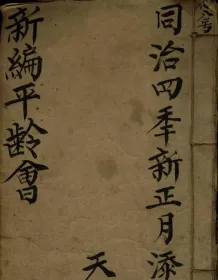 同治四季新正月添
天
新編平齡會